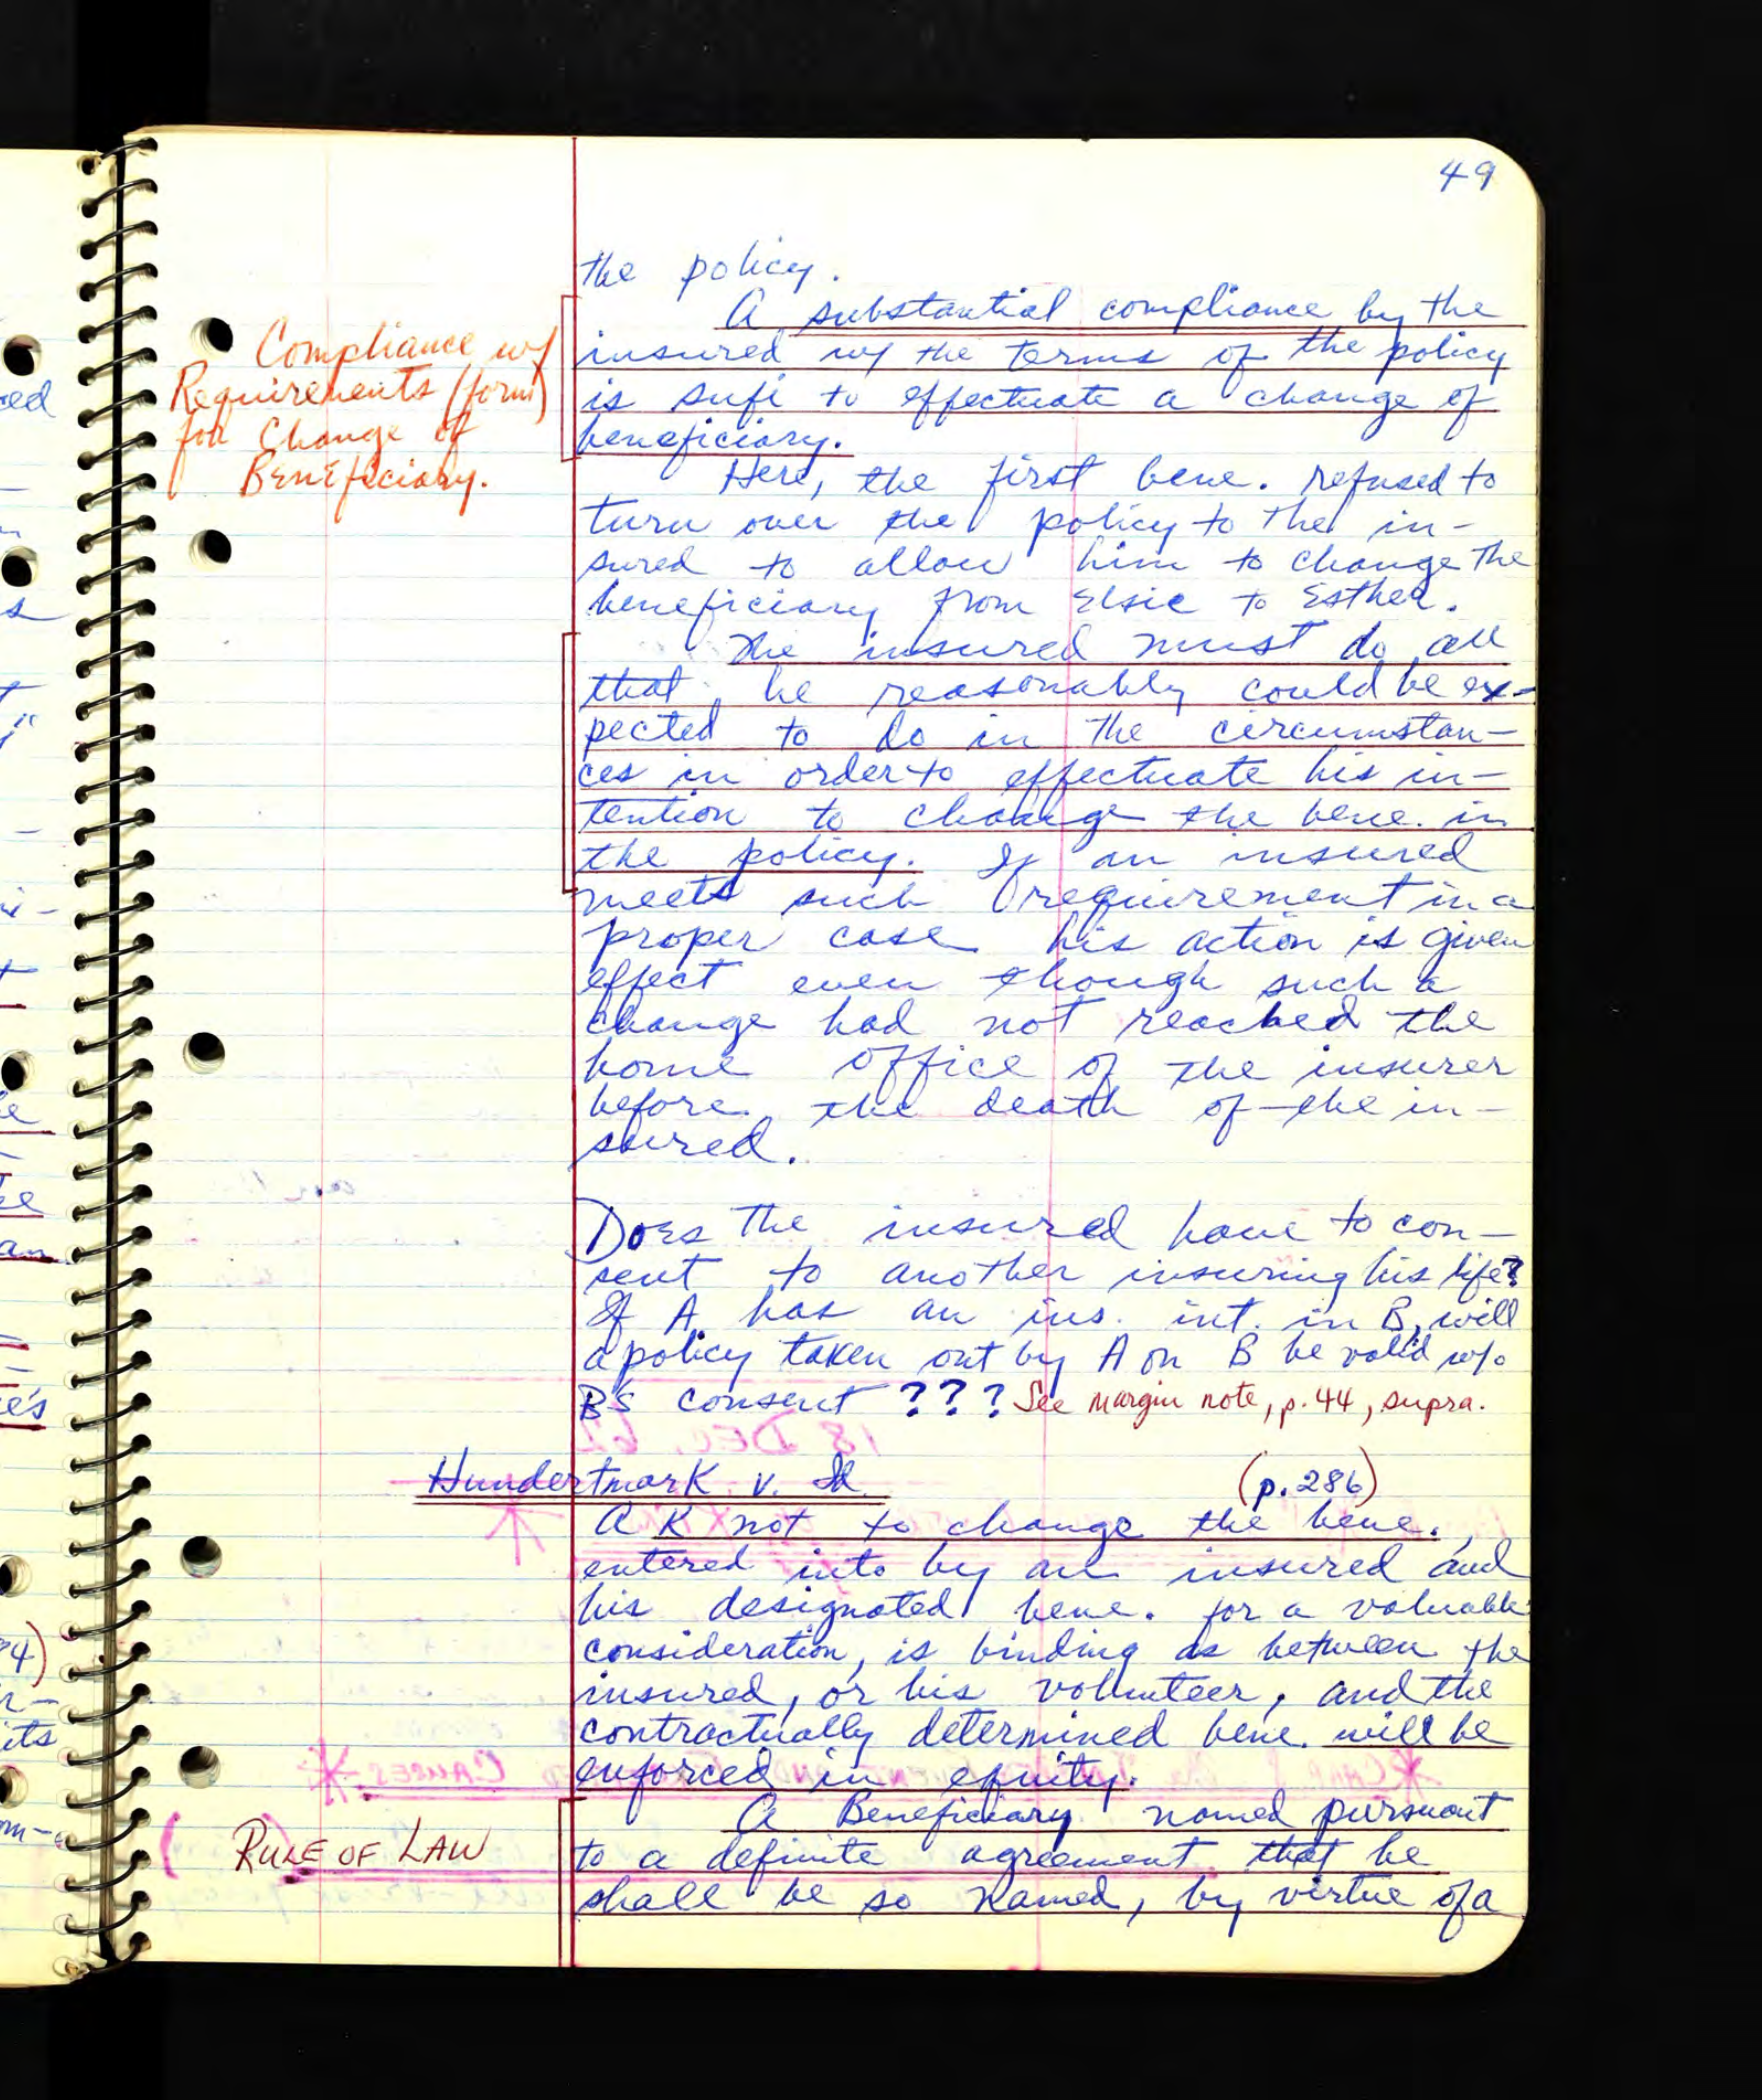 49
the policy.
A substantial compliance by the
insured w/ the terms of the policy
is sufi to effectuate a change of
beneficiary.
Compliance w/
Requirements (form)
for Change of
Beneficiary.
Here, the first bene. refused to
turn over the policy to the in-
sured to allow him to change the
beneficiary from Elsie to Esther.
The insured must do all
that he reasonably could be ex-
pected to do in the circumstan-
ces in order to effectuate his in-
tention to change the bene. in
the policy. If an insured
meets such requirement in a
proper case his action is given
effect even though such a
change had not reached the
home office of the insurer
before the death of the in-
sured.
Does the insured have to con-
sent to another insuring his life?
If A has an ins. int. in B, will
a policy taken out by A on B be valid w/o
B's consent ??? See margin note, p. 44, supra.
Hundertmark v. (p. 286)
A K not to change the bene.,
entered into by an insured and
his designated bene. for a valuable
consideration, is binding as between the
insured, or his volunteer, and the
contractually determined bene. will be
enforced in equity.
A Beneficiary named pursuant
RULE OF LAW
to a definite agreement that he
shall be so named, by virtue of a